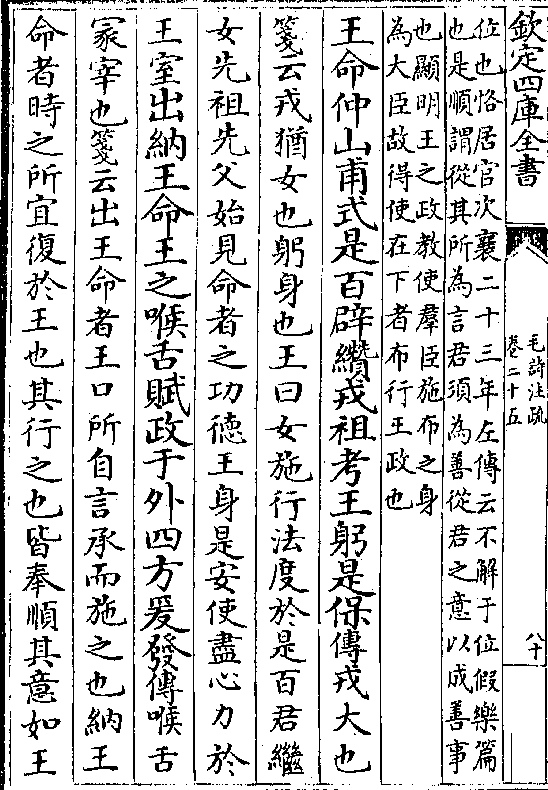 欽定四庫全書
毛詩注疏
卷二十五
八十
位也恪居官次襄二十三年左傳云不解于位假樂篇
也是順謂從其所為言君須為善從君之意以成善事
也顯明王之政教使羣臣施布之身
為大臣故得使在下者布行王政也
王命仲山甫式是百辟纘戎祖考王躬是保傳戎大也
箋云戎猶女也躬身也王曰女施行法度於是百君繼
女先祖先父始見命者之功德王身是安使盡心力於
王室出納王命王之喉舌賦政于外四方爰發傳喉舌
冡宰也箋云出王命者王口所自言承而施之也納王
命者時之所宜復於王也其行之也皆奉順其意如王